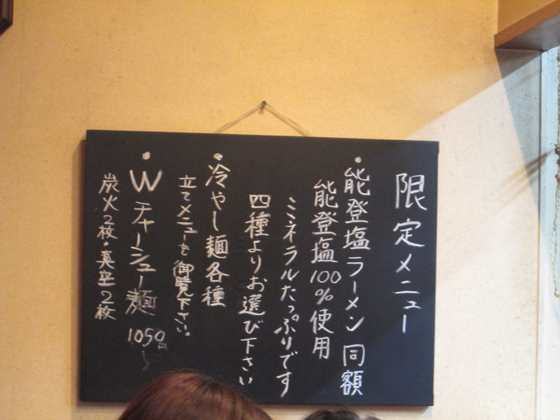 限定メニュー
・能登塩ラーメン 同額
能登塩100%使用
ミネラルたっぷりです
四種よりお選び下さい
・冷やし麺各種
立てメニューを御覧下さい。
・Wチャーシュー麺 1050円〜
炭火2枚・真空2枚